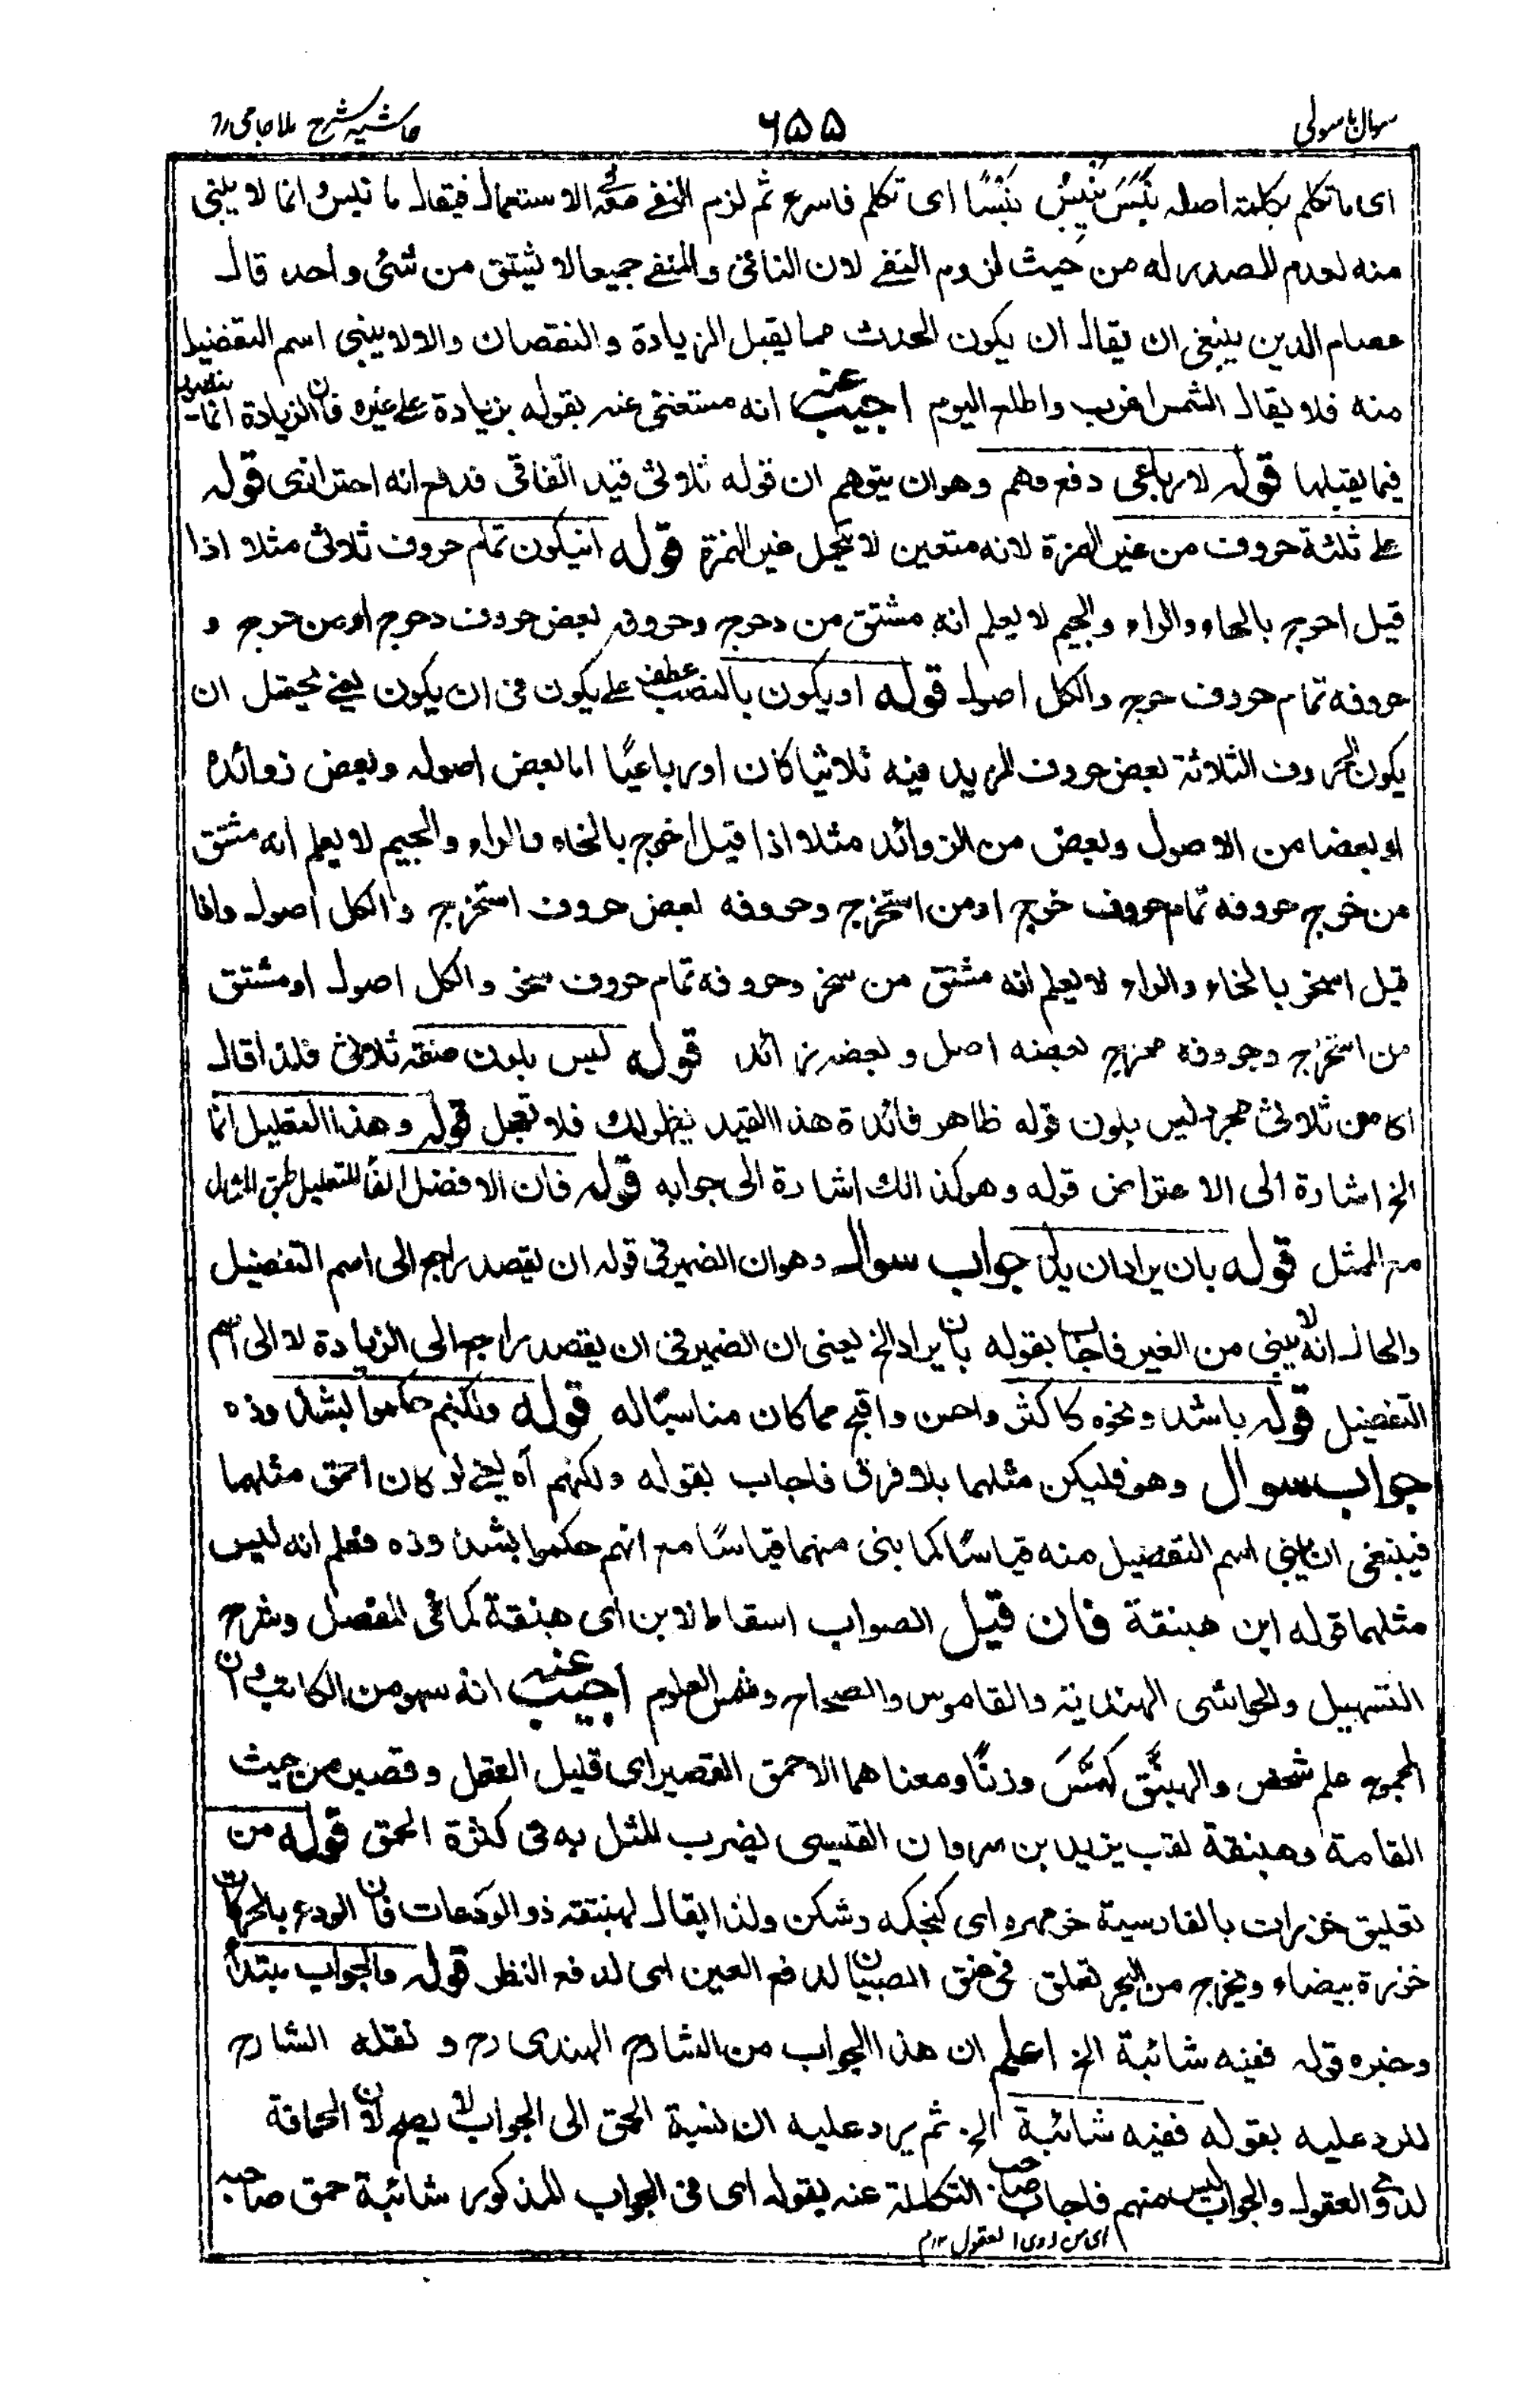 سوال باسولی
۶۵۵
حاشیہ شرح ملا جامی
ای ما تکلم بکلمته اصله نَبَسَ يَنْبِسُ نَبْسًا ای تکلم فاسرع ثم لزم النفی معه الاستعمال فیقال ما نبس وانما لا یبنی
منه لعدم المصدر له من حیث لزوم النفی لان النافی والمنفی جمیعا لا یشتق من شئ واحد قال
عصام الدین ینبغی ان یقال ان یکون الحدث مما یقبل الزیادة والنقصان والا لا یبنی اسم التفضیل
منه فلا یقال الشمس اغرب واطلع الیوم اجیب عنه انه مستغنی عنه بقوله بزیادة علی غیره فان الزیادة انما یتصور
فیما یقبلها قوله لا رباعی دفع وهم وهو ان یتوهم ان قوله ثلاثی قید اتفاقی فدفع انه احترازی قوله
علی ثلثة حروف من غیر الهمزة لانه متعین لا یحتمل غیر الهمزة قوله ان یکون تمام حروف ثلاثی مثلا اذا
قیل احرج بالحاء والراء والجیم لا یعلم انه مشتق من دحرج وحروفه بعض حروف دحرج او من حرج و
حروفه تمام حروف حرج والکل اصول قوله او یکون بالنصب عطف علی یکون فی ان یکون یعنی یحتمل ان
یکون الحروف الثلاثة بعض حروف المزید فیه ثلاثیا کان او رباعیًا اما بعض اصوله وبعض زوائده
او بعضا من الاصول وبعض من الزوائد مثلا اذا قیل اخرج بالخاء والراء والجیم لا یعلم انه مشتق
من خرج حروفه تمام حروف خرج او من استخرج وحروفه بعض حروف استخرج والکل اصول واذا
قیل اسخر بالخاء والراء لا یعلم انه مشتق من سخر وحروفه تمام حروف سخر والکل اصول او مشتق
من استخرج وحروفه بعضه اصل وبعضه زائد قوله لیس بلون صفة ثلاثی فلذا قال
ای من ثلاثی مجرد لیس بلون قوله ظاهر فائدة هذا القید یظهر لک فلا تعجل قوله وهذا التعلیل انما
الخ اشارة الی الاعتراض قوله وهو کذالک اشارة الی جوابه قوله فان الافضل الفا للتعلیل المثال
مع الممثل قوله بان یراد ان جواب سوال وهو ان الضمیر فی قوله ان یقصد راجع الی اسم التفضیل
والحال انه لا یبنی من الغیر فاجاب بقوله بان یراد الخ یعنی ان الضمیر فی ان یقصد راجع الی الزیادة لا الی اسم
التفضیل قوله باشد ونحوه کاکثر واحسن واقبح مما کان مناسبًا له قوله ولکنهم حکموا بشذوذه
جواب سوال وهو فلیکن مثلهما بلا فرق فاجاب بقوله ولکنهم آه یعنی لو کان احمق مثلهما
فینبغی ان یبنی اسم التفضیل منه قیاسًا کما بنی منهما قیاسًا مع انهم حکموا بشذوذه فعلم انه لیس
مثلهما قوله ابن هبنقة فان قیل الصواب اسقاط الابن ای هبنقة کما فی المفصل وشرح
التسهیل والحواشی الهندیة والقاموس والصحاح وشمس العلوم اجیب عنه انه سهو من الکاتب وان
المجموع علم شخص والهبنّق کهمَّسَ وزنًا ومعناهما الاحمق القصیر ای قلیل العقل وقصیر من حیث
القامة وهبنقة لقب یزید بن مروان القیسی یضرب المثل به فی کثرة الحمق قوله من
تعلیق خزرات بالفارسیة خرمهره ای کنجکه وشکن ولذا یقال لهبنقة ذو الوَدَعات فان الودع بالحرکات
خزرة بیضاء ویخرج من البحر تعلق فی عنق الصبیان لدفع العین ای لدفع النظر قوله والجواب مبتدأ
وخبره قوله ففیه شائبة الخ اعلم ان هذا الجواب من الشارح الهندی رح ونقله الشارح
للرد علیه بقوله ففیه شائبة الخ ثم یرد علیه ان نسبة الحمق الی الجواب لا یصح لان الحماقة
لذوی العقول والجواب لیس منهم فاجاب صاحب التکملة عنه بقوله ای فی الجواب المذکور شائبة حمق صاحبه
ای من ذوی العقول ۱۲م